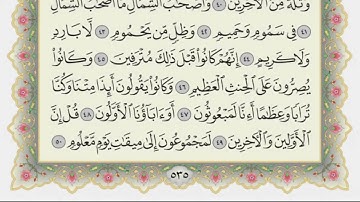 وَثُلَّةٌ مِّنَ الْآخِرِينَ ٤٠ وَأَصْحَابُ الشِّمَالِ مَا أَصْحَابُ الشِّمَالِ
٤١ فِي سَمُومٍ وَحَمِيمٍ ٤٢ وَظِلٍّ مِّن يَحْمُومٍ ٤٣ لَّا بَارِدٍ
وَلَا كَرِيمٍ ٤٤ إِنَّهُمْ كَانُوا قَبْلَ ذَٰلِكَ مُتْرَفِينَ ٤٥ وَكَانُوا
يُصِرُّونَ عَلَى الْحِنثِ الْعَظِيمِ ٤٦ وَكَانُوا يَقُولُونَ أَئِذَا مِتْنَا وَكُنَّا
تُرَابًا وَعِظَامًا أَإِنَّا لَمَبْعُوثُونَ ٤٧ أَوَآبَاؤُنَا الْأَوَّلُونَ ٤٨ قُلْ إِنَّ
الْأَوَّلِينَ وَالْآخِرِينَ ٤٩ لَمَجْمُوعُونَ إِلَىٰ مِيقَاتِ يَوْمٍ مَّعْلُومٍ ٥٠
٥٣٥